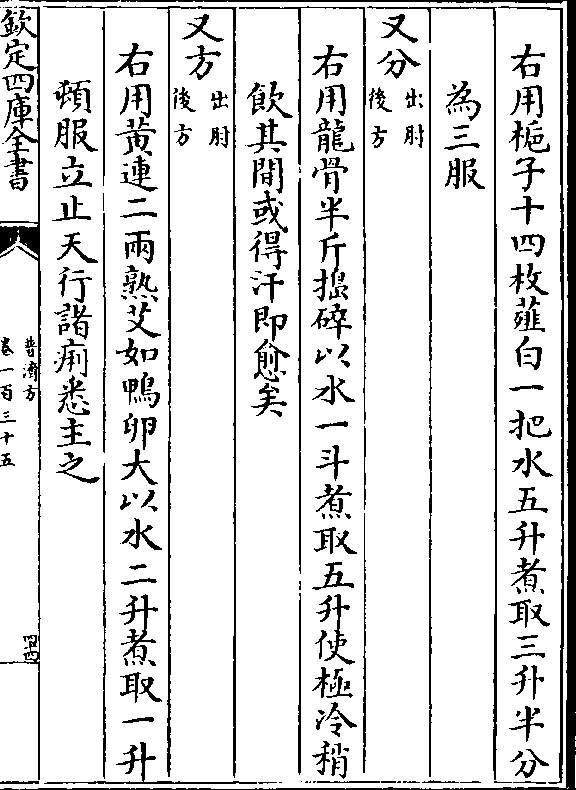 右用梔子十四枚薤白一把水五升煮取三升半分
為三服
又分出肘後方
右用龍骨半斤搗碎以水一斗煮取五升使極冷稍
飲其間或得汗即愈矣
又方出肘後方
右用黃連二兩熟艾如鴨卵大以水二升煮取一升
頓服立止天行諸痢悉主之
欽定四庫全書
普濟方
卷一百三十五
四四